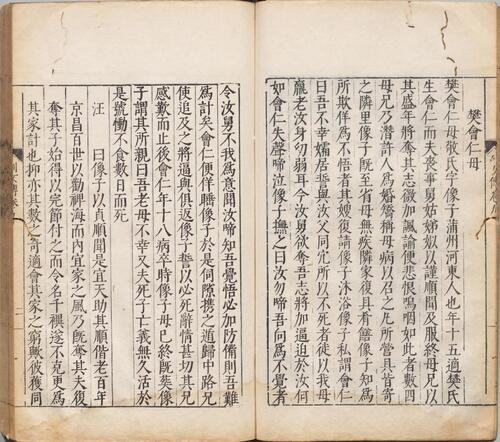 樊會仁母
樊會仁母敬氏字像子蒲州河東人也年十五適樊氏
生會仁而夫喪事舅姑姊姒以謹順聞及服終母兄以
其盛年將奪其志微加諷諭便悲恨嗚咽如此者數四
母兄乃潛許人為婚矯稱母病以召之凡所營具皆寄
之隣里像子既至省母無疾隣家復具肴饍像子知為
所欺佯為不悟者其嫂復請像子沐浴像子私謂會仁
曰吾不幸孀居誓與汝父同穴所以不死者徒以我母
龐老汝身幼弱耳今汝舅欲奪吾志將加逼迫於汝何
如會仁失聲啼泣像子撫之曰汝勿啼吾何為不覺者
令汝舅不我為意聞汝啼知吾覺悟必加防備則吾難
為計矣會仁便佯睡像子於是伺隙携之遁歸中路兄
使追及之將逼與俱返像子誓以必死辭情甚切其兄
感歎而止後會仁年十八病卒時像子母已終既葬像
子謂其所親曰吾老母不幸又夫死子亡義無久活於
是號慟不食數日而死
汪　曰像子以貞順聞是宜天助其順偕老百年
京昌百世以勸裨海而内宜家之風乃既奪其夫復
奪其子始得以完節付之而令名千禩遂不克更為
其家計也抑亦其數之奇適會其家之窮歟彼獲同